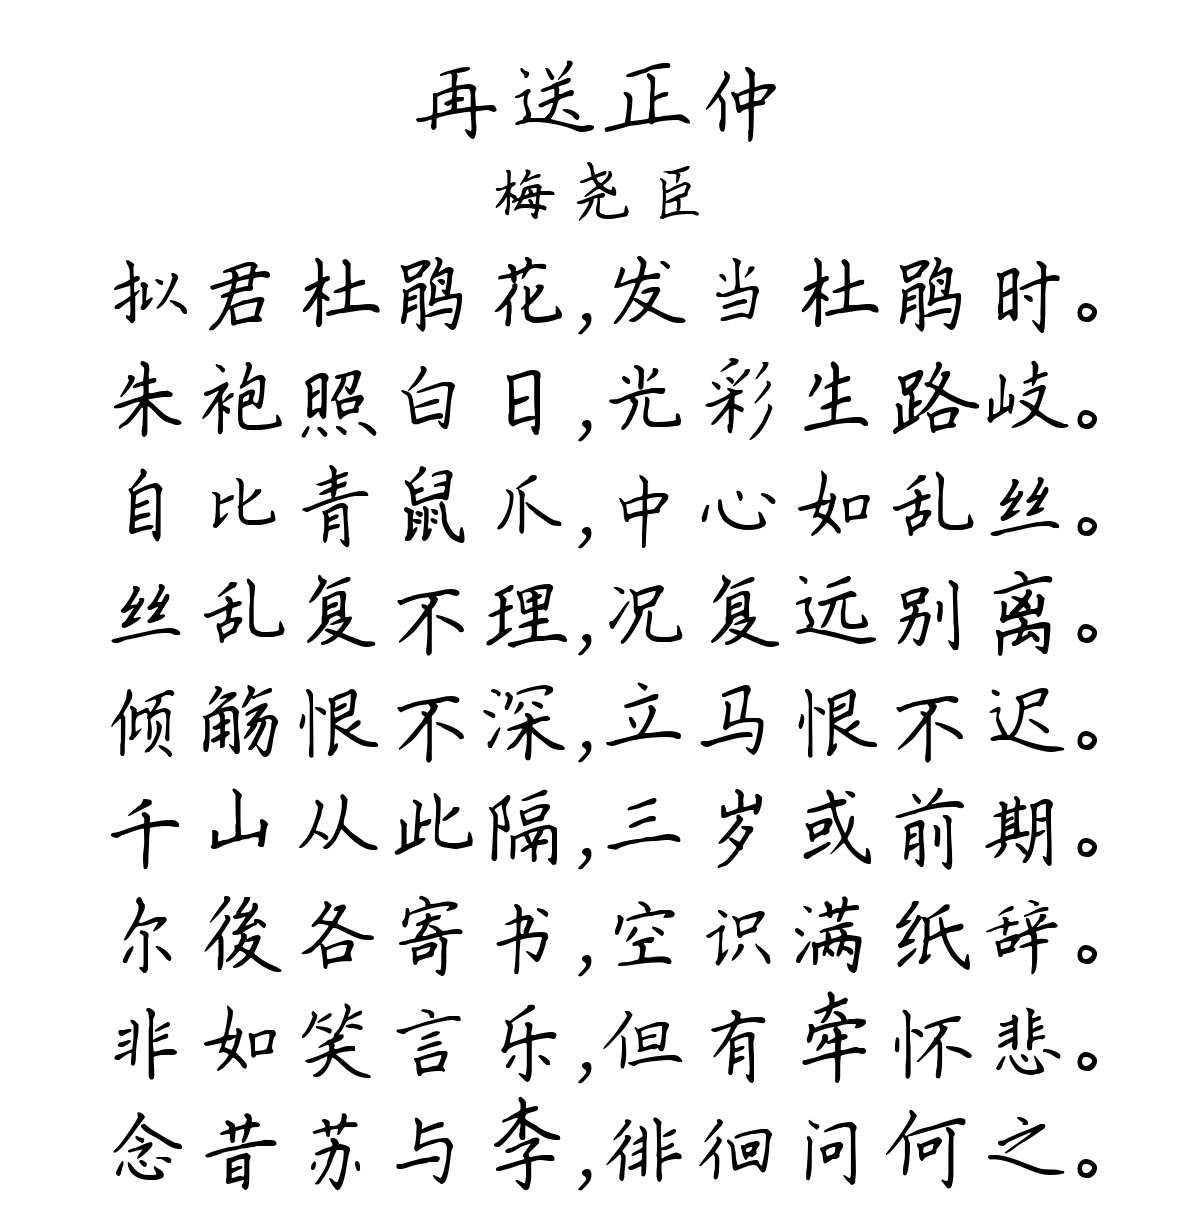 再送正仲
梅尧臣
拟君杜鹃花,发当杜鹃时。
朱袍照白日,光彩生路歧。
自比青鼠爪,中心如乱丝。
丝乱复不理,况复远别离。
倾觞恨不深,立马恨不迟。
千山从此隔,三岁或前期。
尔後各寄书,空识满纸辞。
非如笑言乐,但有牵怀悲。
念昔苏与李,徘徊问何之。